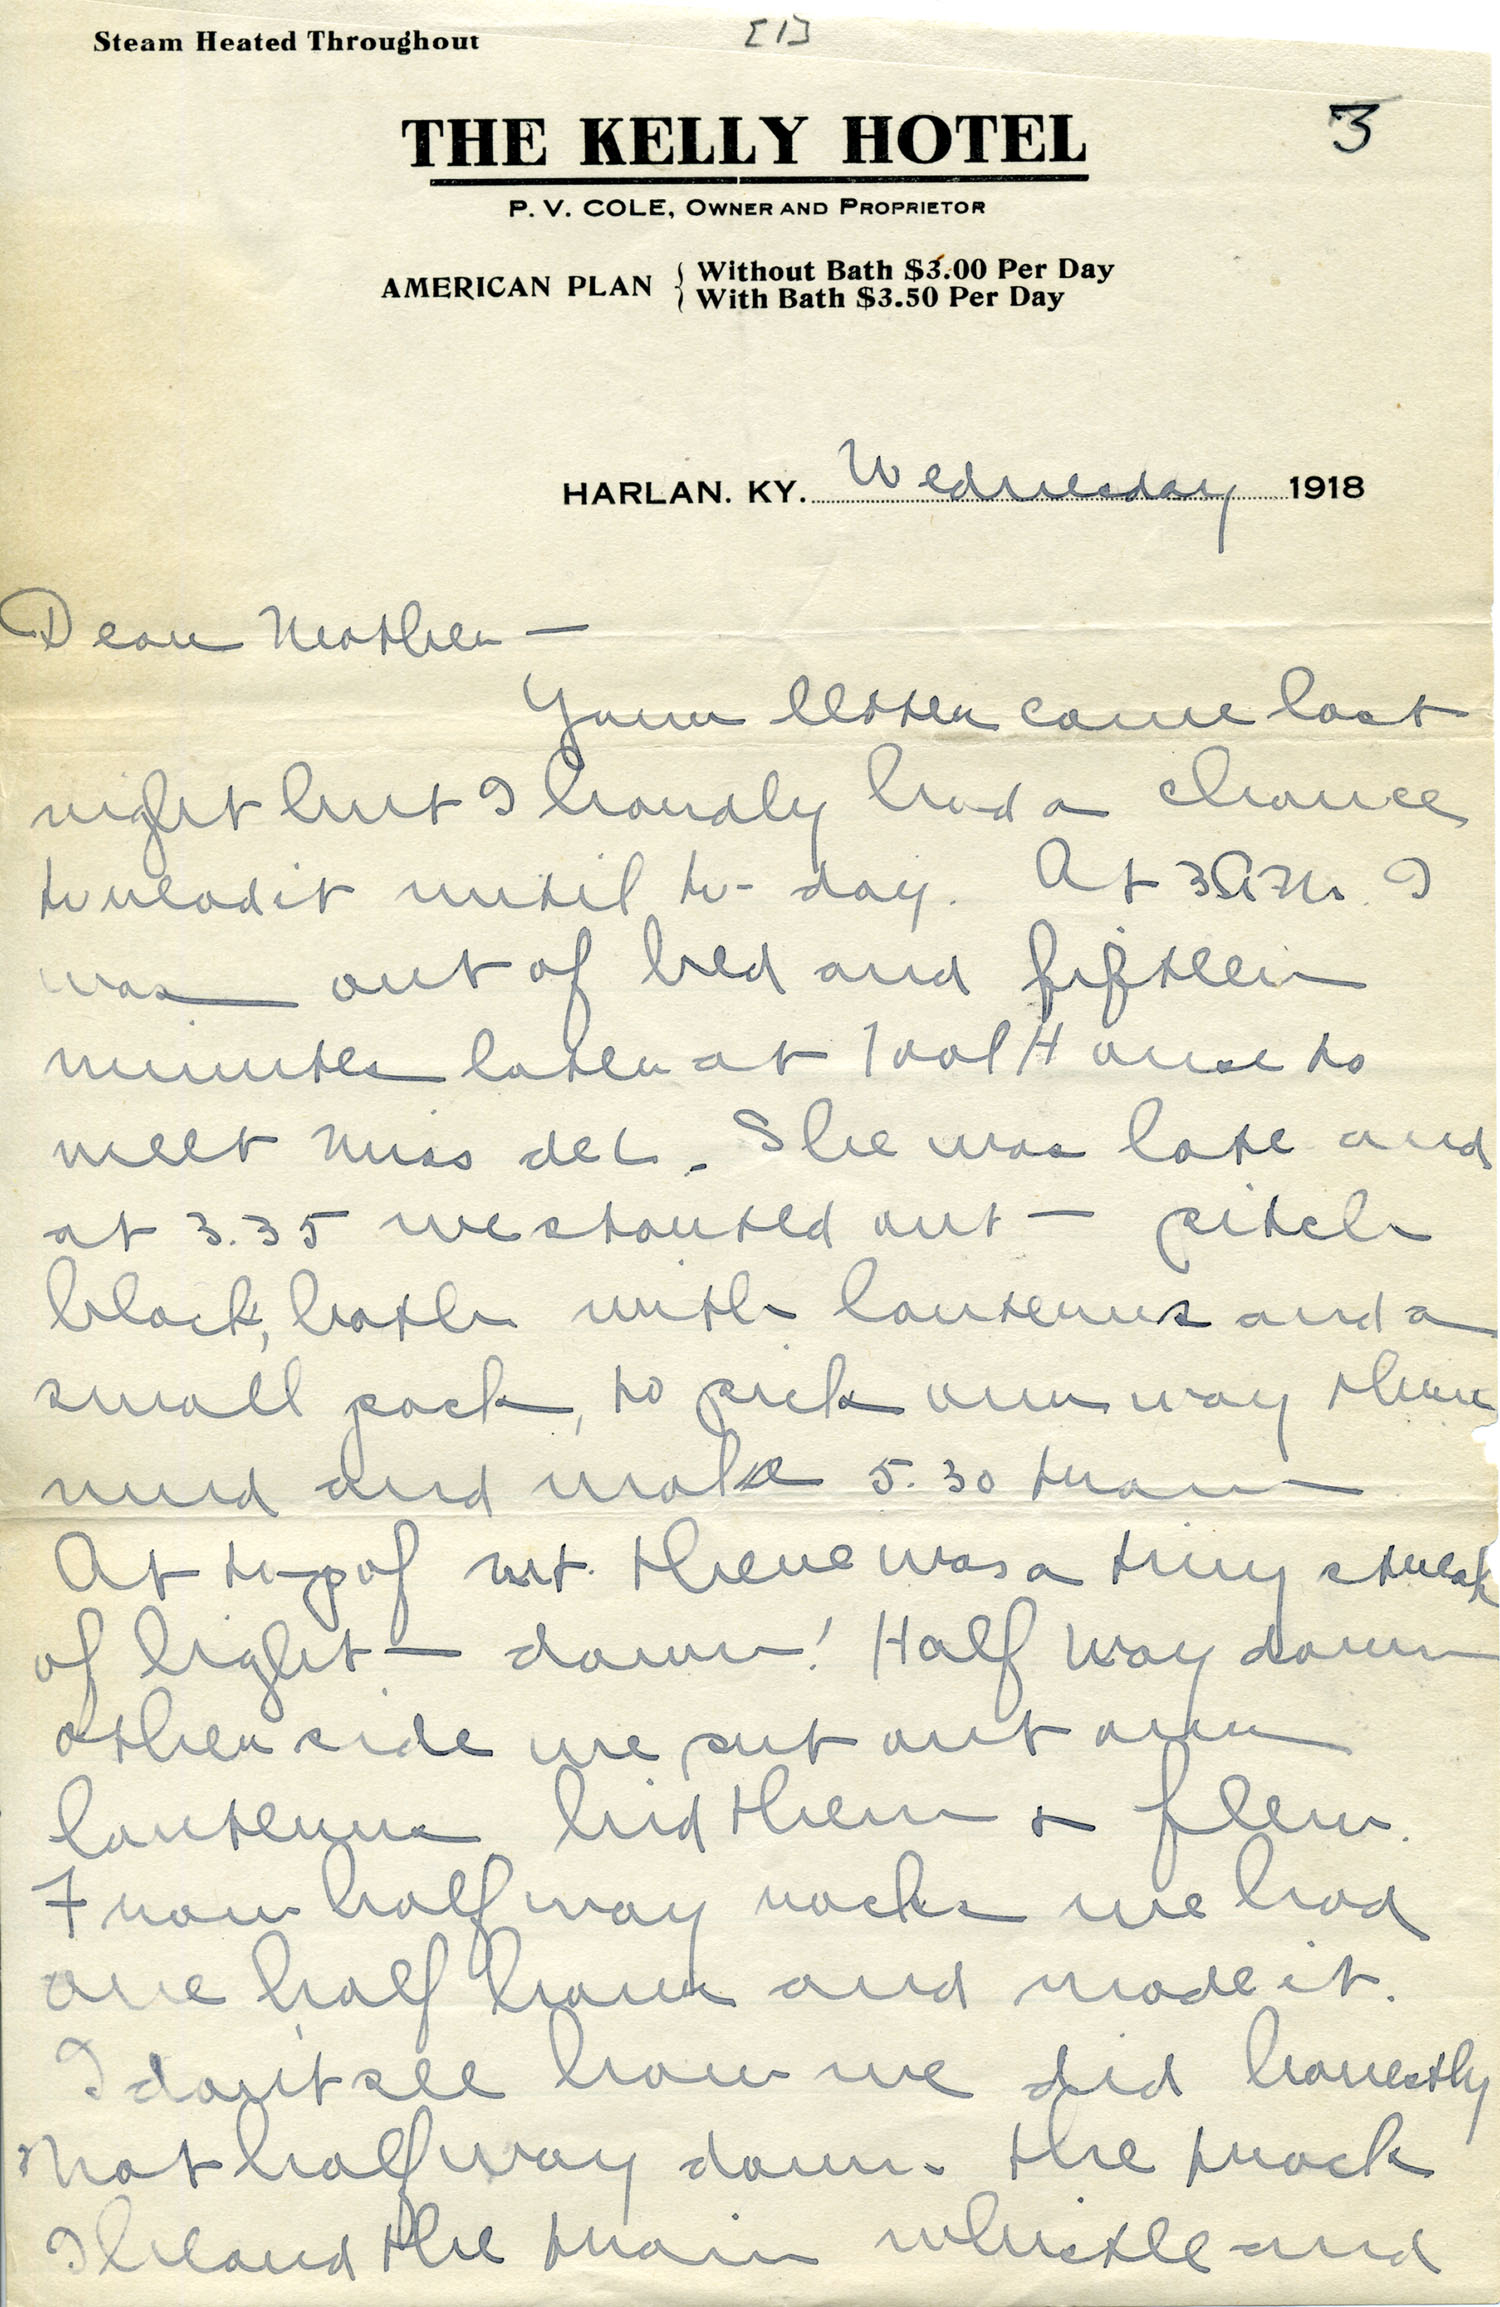 Steam Heated Throughout
[1]
3
THE KELLY HOTEL
P. V. COLE, OWNER AND PROPRIETOR
AMERICAN PLAN { Without Bath $3.00 Per Day
With Bath $3.50 Per Day
HARLAN. KY. Wednesday 1918
Dear Mother —
Your letter came last
night but I hardly had a chance
to read it until to-day. At 3 A.M. I
was out of bed and fifteen
minutes later at Tool House to
meet Miss deL. She was late and
at 3.35 we started out — pitch
black, both with lanterns and a
small pack, to pick our way thru
mud and make 5.30 train
At top of mt. there was a tiny streak
of light — dawn! Half way down
other side we put out our
lanterns hid them + flew.
From half way rocks we had
one half hour and made it.
I don't see how we did honestly
Not half way down the track
I heard the train whistle and